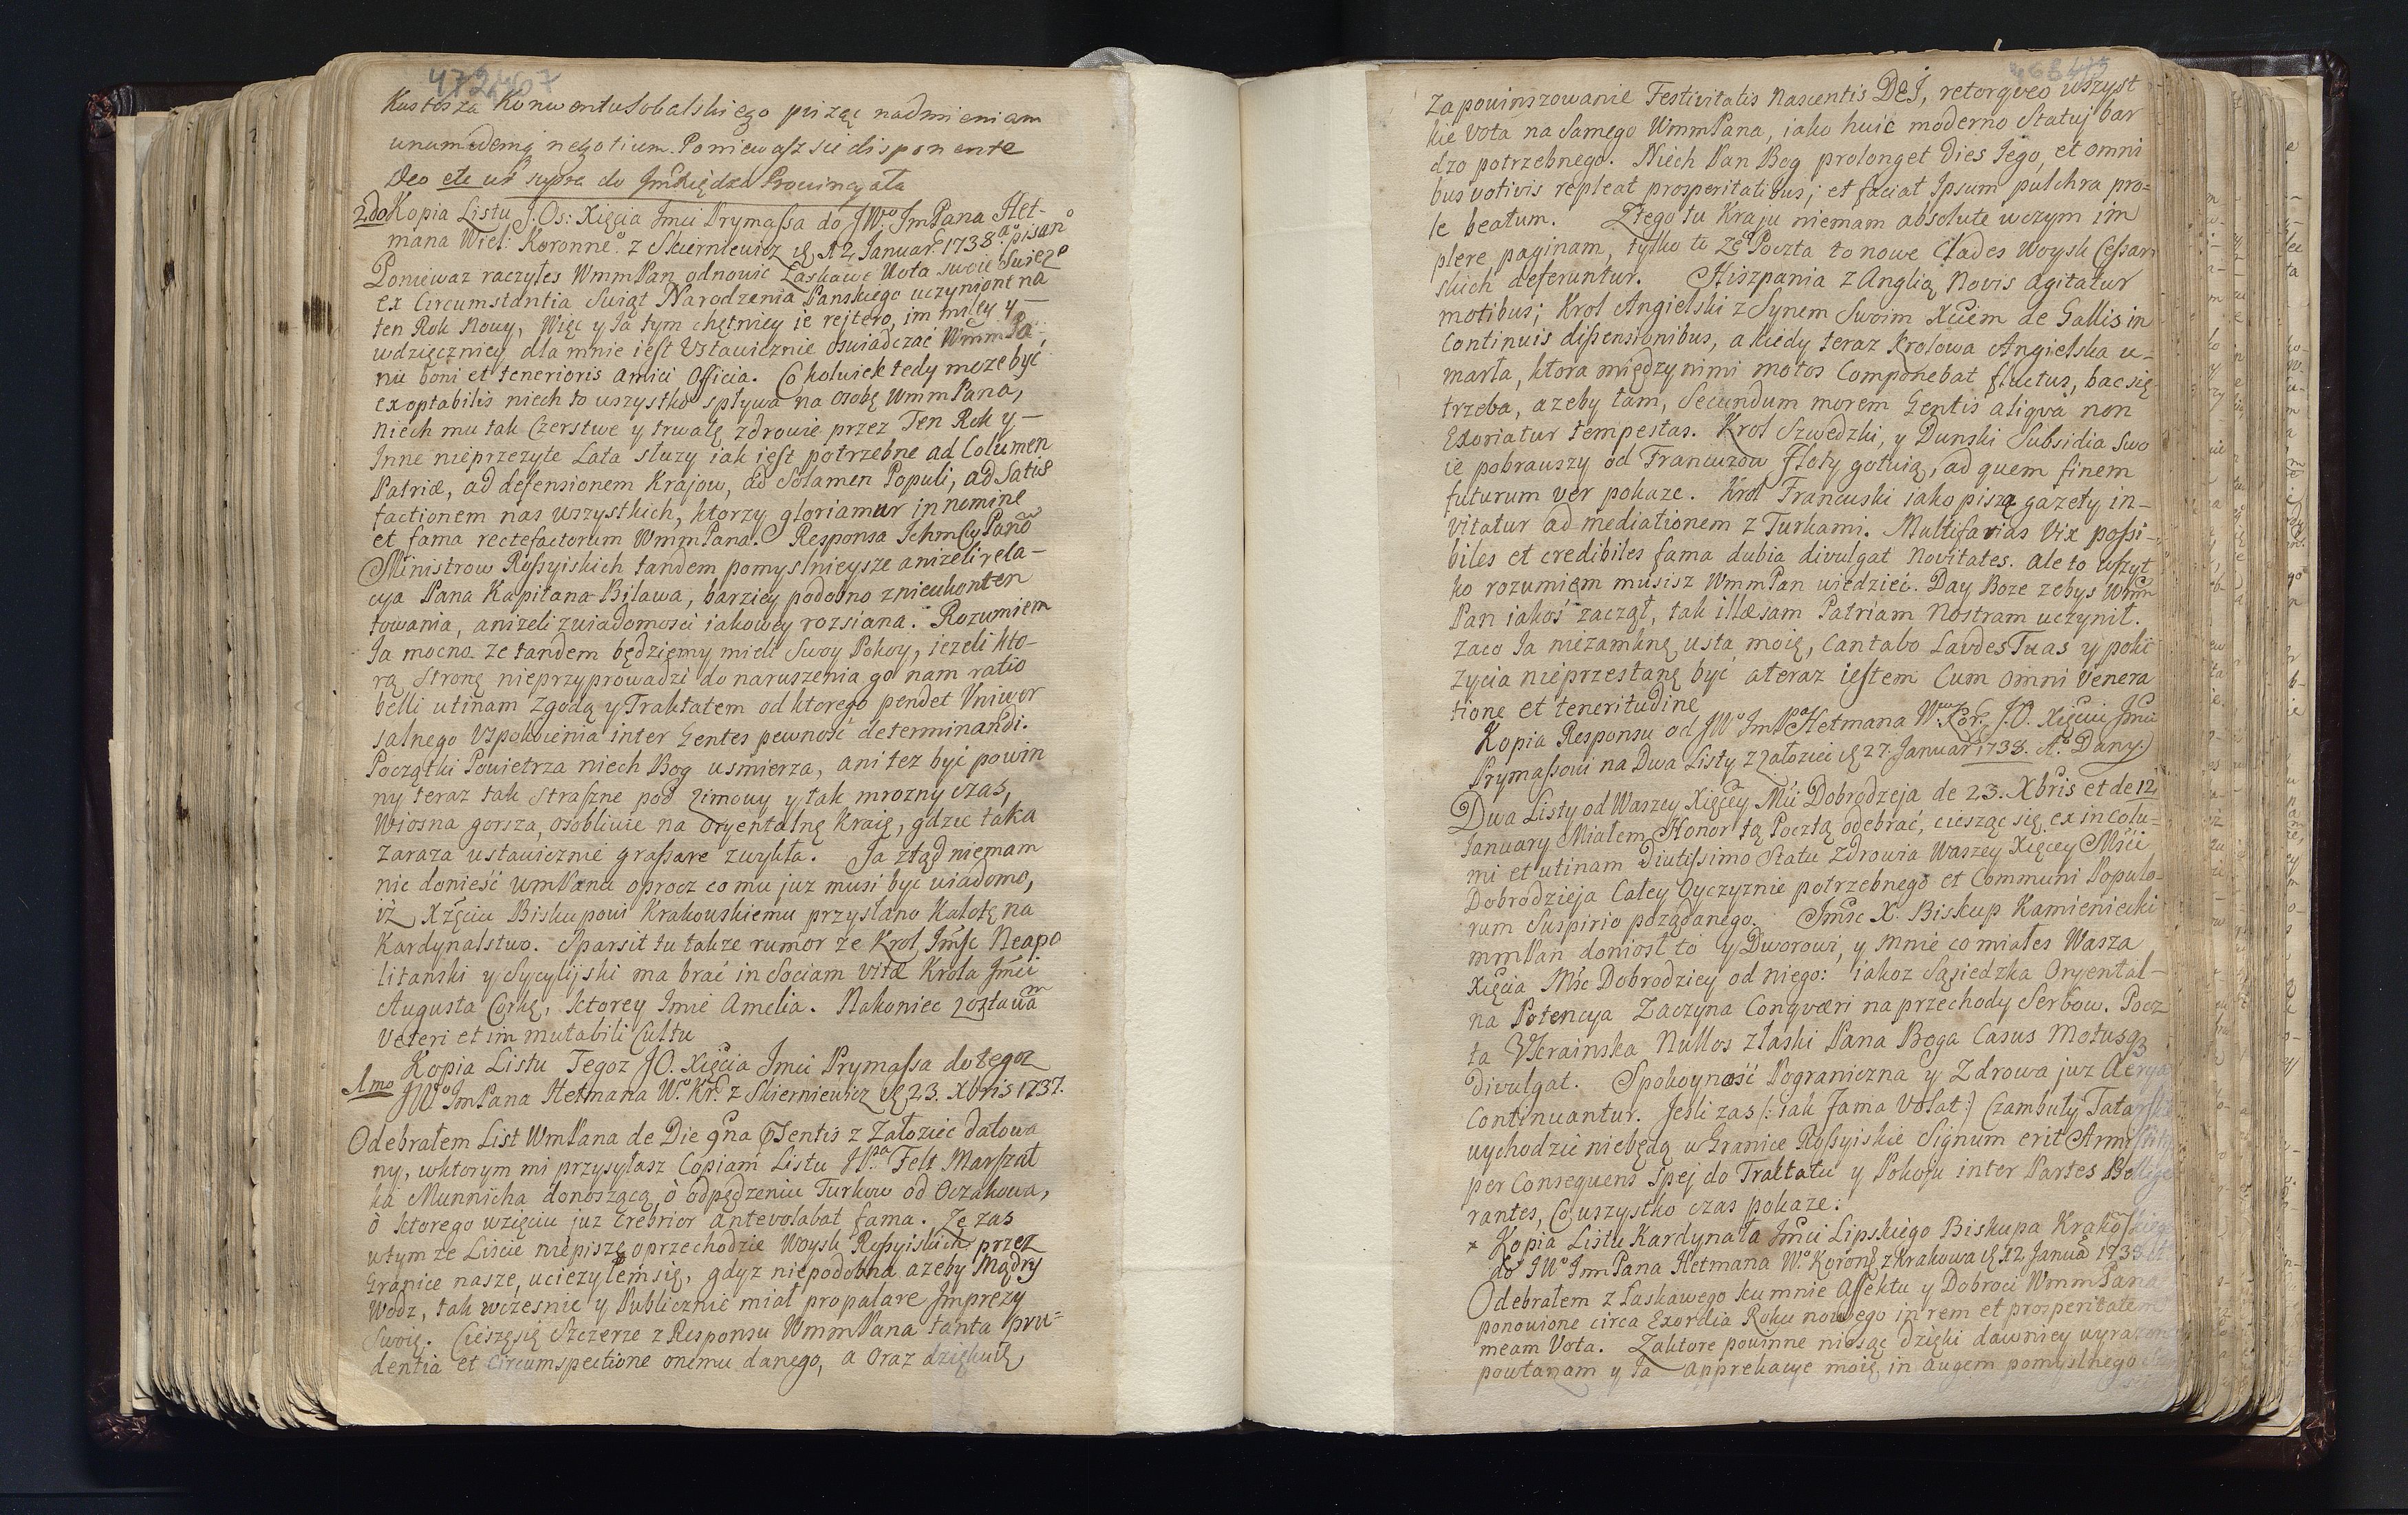 472 467
Kustosza Konwentu Sokalskiego pisząc nadmieniam
unum idemq negotium. Poniewasz sie disponente
Deo etc ut supra do Jmć Xiędza Prowincyała
2do Kopia Listu J. Os: Xięcia Jmći Prymassa do JWo Jm Pana Het-
mana Wiel: Koronneo. z Skierniewicz 12 Januar: 1738 ao pisano
Poniewaz raczyłes WmmPan odnowić Łaskawe Vota swoie swiezo
ex Circumstantia Swiąt Narodzenia Panskiego uczynione na
ten Rok Nowy, Więc y Ja tym chętniey ie rejtero, im miley y —
wdzięczniey dla mnie iest Ustawicznie oswiadczać WmmPa
nu boni et tenerioris amici Officia. Cokolwiek tedy moze być
exoptabilis niech to wszystko spływa na osobę WmmPana,
Niech mu tak Czerstwe y trwałe zdrowie przez Ten Rok y —
Inne nieprzezyte Lata słuzy iak iest potrzebne ad Columen
Patriæ, ad defensionem Krajow, ad Solamen Populi, ad Satis
factionem nas wszystkich, ktorzy gloriamur in nomine
et fama rectefactorum WmmPana. Responsa Ichmciow Pano
Ministrow Rossyiskich tandem pomyslnieysze anizeli rela-
cya Pana Kapitana Bilawa, barziey podobno z nieukonten
towania, anizeli z wiadomosci iakowey rozsiana. Rozumiem
Ja mocno ze tandem będziemy mieli Swoy Pokoy, iezeli kto-
rą Stronę nieprzyprowadzi do naruszenia go nam ratio
belli utinam zgodą y Traktatem od ktorego pendet Univer
salnego Uspokoienia inter Gentes pewność determinandi.
Początki Powietrza niech Bog usmierza, ani tez być powin
ny teraz tak straszne pod zimowy y tak mrozny czas,
Wiosna gorsza, osobliwie na Oryentalne Kraie, gdzie taka
Zaraza ustawicznie grassare zwykła. Ja ztąd niemam
nic donieść WmPanu oprocz co mu juz musi być wiadomo,
iż Xżęciu Biskupowi Krakowskiemu przysłano Kalotę na
Kardynalstwo. Sparsit tu takze rumor ze Krol Jmść Neapo
litanski y Sycylijski ma brać in Sociam vitæ Krola Jmći
Augusta Corkę, ktorey Imie Amelia. Nakoniec zostawam
Veteri et immutabili Cultu
Kopia Listu Tegoz JO. Xięcia Jmći Prymassa do tegoz
1mo JWo JmPana Hetmana Wo. Kr. z Skierniewicz 23. Xbris 1737.
Odebrałem List WmPana de Die 9na Præsentis z Załoziec datowa
ny, w ktorym mi przysyłasz Copiam Listu JPa Felt Marszał
ka Munnicha donoszącą o odpędzeniu Turkow od Oczakowa,
o ktorego wzięciu juz crebrior antevolabat fama. Ze zas
w tym ze Liście niepisze o przechodzie Woysk Rossyiskich przez
Granice nasze, ucieszyłem się, gdyz niepodobna azeby Mądry
Wodz, tak wczesnie y Publicznie miał propalare Imprezy
Swoie. Cieszę się Szczerze z Responsu WmmPana tanta pru=
dentia et Circumspectione onemu danego, a oraz dziękuię
za powinszowanie Festivitatis Nascentis DEJ, retorqveo wszyst
kie Vota na Samego WmmPana, iako huic moderno Statuj bar
dzo potrzebnego. Niech Pan Bog prolonget Dies Jego, et omni
bus votivis repleat prosperitatibus; et faciat Ipsum pulchra pro=
le beatum. Z tego tu Kraju niemam absolute w czym im
plere paginam, tylko te ze Poczta to nowe Clades Woysk Cessar
skich deferuntur. Hiszpania z Anglią Novis agitatur
motibus; Krol Angielski z Synem Swoim Xciem de Gallis in
Continuis dissensionibus, a kiedy teraz Krolowa Angielska u-
marła, ktora między nimi motos Componebat fluctus, bać się
trzeba, azeby tam, Secundum morem Gentis aliqva non
Exoriatur tempestas. Krol Szwedzki, y Dunski Subsidia Swo
ie pobrawszy od Francuzow Floty gotuią, ad quem finem
futurum ver pokaze. Krol Francuski iako piszą gazety in-
vitatur ad mediationem z Turkami. Multifarias Vix possi-
biles et credibiles fama dubia divulgat Novitates. ale to wszyt
ko rozumiem musisz WmmPan wiedzieć. Day Boze zebys Wmm
Pan iakoś zaczął, tak illæsam Patriam Nostram uczynił.
Zaco Ja niezamknę usta moie, Cantabo Laudes Tuas y poki
zycia nieprzestanę być a teraz iestem Cum omni Venera
tione et teneritudine
Kopia Responsu od JWo JmPa Hetmana Wo. Kor. J.O. Xięciu Jmći
Prymassowi na Dwa Listy z Załoziec 27. Januar 1738. Ao Dany.
Dwa Listy od Waszey Xięćey Mći Dobrodzeja de 23. Xbris et de 12
January Miałem Honor tą Pocztą odebrać, ciesząc się ex incolu=
mi et utinam Diutissimo Statu Zdrowia Waszey Xięcey Mści
Dobrodzieja Całey Oyczyznie potrzebnego et Communi Populo-
rum Suspirio pożądanego. Jmsc X. Biskup Kamieniecki
mmPan doniosł to y Dworowi, y mnie co miałes Wasza
Xięcia Mść Dobrodziey od niego: iakoz Sąsiedzka Oryental-
na Potencya Zaczyna Conqværi na przechody Serbow. Pocz
ta Ukrainska Nullos z łaski Pana Boga Casus Motusqз
Divulgat. Spokoyność Pograniczna y Zdrowa juz Aerya
Continuantur. Jesli zas /: iak Fama Volat :/ Czambuły Tatarskie
wychodzić niebędą w Granice Rossyiskie Signum erit
per Consequens Spej do Traktatu y Pokoju inter Partes Bellige
rantes, Co wszystko czas pokaze.
× Kopia Listu Kardynała Jmći Lipskiego Biskupa Krakoskiego
do JWo JmPana Hetmana Wo. Koronę z Krakowa 12. Janua 1738
Odebrałem z Łaskawego ku mnie Affektu y Dobroci WmmPana
ponowione circa Exordia Roku nowego in rem et prosperitatem
meam Vota. Zaktore powinne niosąc dzięki dawniey wyrazone
powtarzam y Ja apprekacye moie, in augem pomyslnego